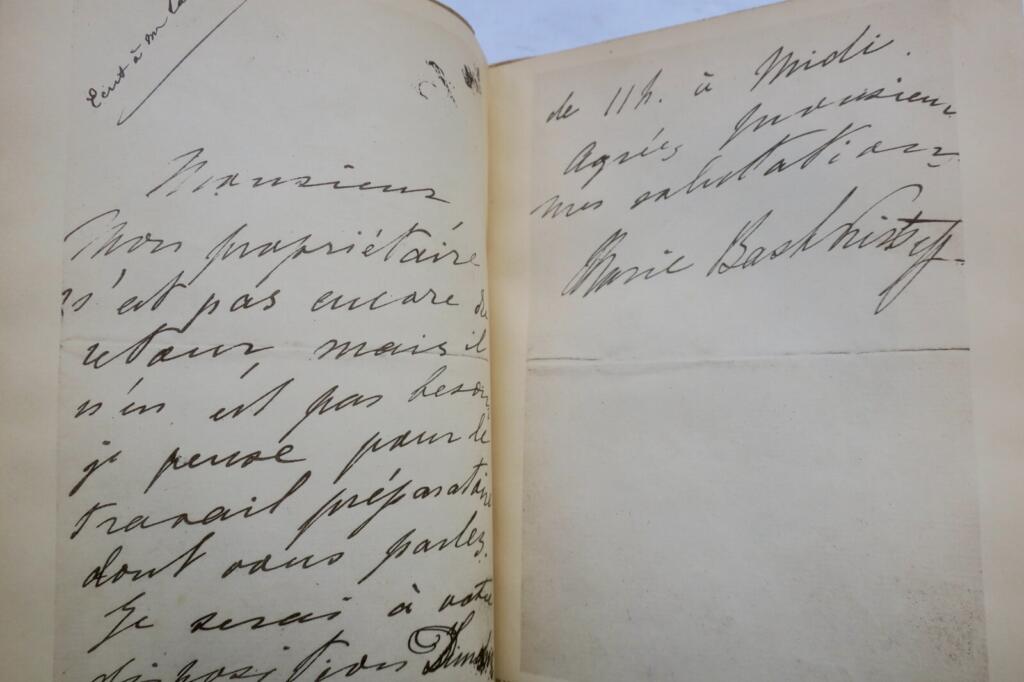 Ecrit à m
Monsieur
Mon propriétaire
n'est pas encore de
retour, mais il
n'en est pas besoin
je pense pour le
travail préparatoire
dont vous parlez.
Je serai à votre
disposition Dim
de 11h. à Midi.
Agréez monsieur
mes salutations
Marie Bashkirtseff